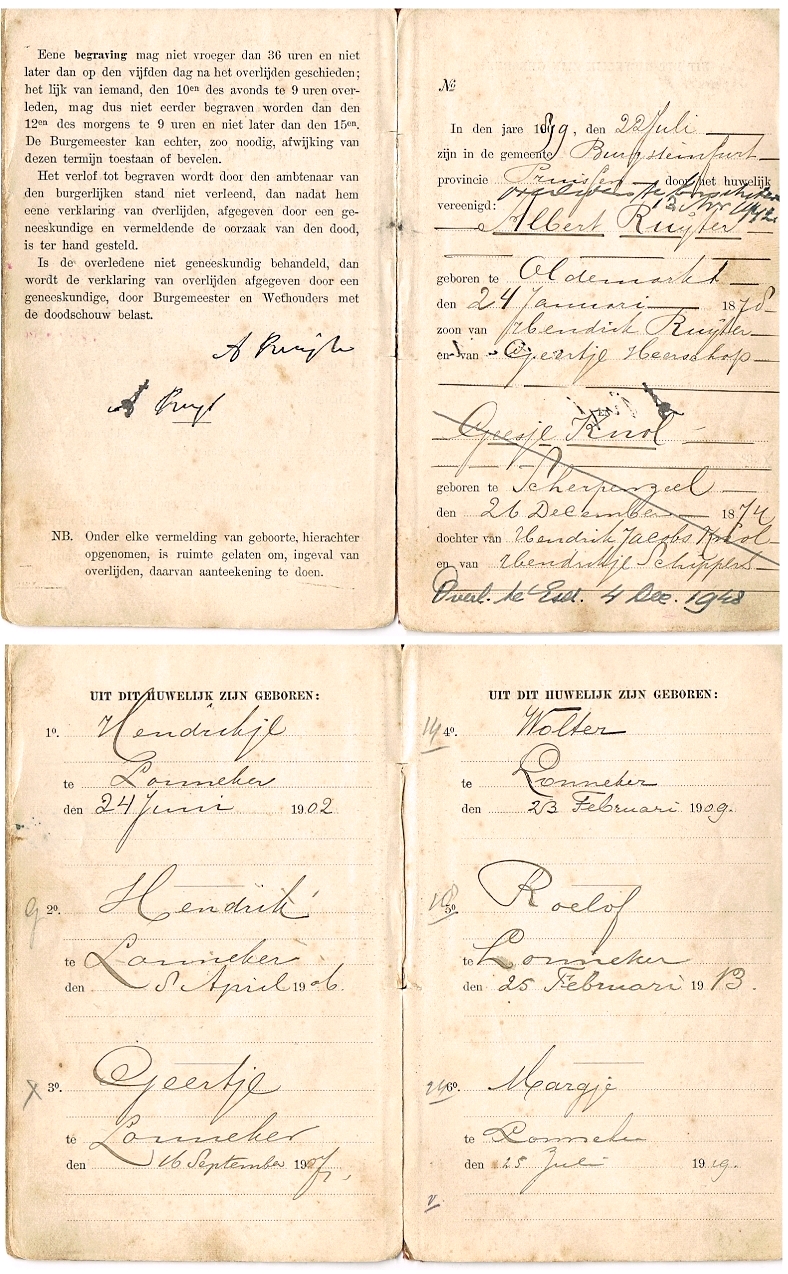 Eene begraving mag niet vroeger dan 36 uren en niet
later dan op den vijfden dag na het overlijden geschieden;
het lijk van iemand, den 10en des avonds te 9 uren over-
leden, mag dus niet eerder begraven worden dan den
12en des morgens te 9 uren en niet later dan den 15en.
De Burgemeester kan echter, zoo noodig, afwijking van
dezen termijn toestaan of bevelen.
Het verlof tot begraven wordt door den ambtenaar van
den burgerlijken stand niet verleend, dan nadat hem
eene verklaring van overlijden, afgegeven door een ge-
neeskundige en vermeldende de oorzaak van den dood,
is ter hand gesteld.
Is de overledene niet geneeskundig behandeld, dan
wordt de verklaring van overlijden afgegeven door een
geneeskundige, door Burgemeester en Wethouders met
de doodschouw belast.
NB. Onder elke vermelding van geboorte, hierachter
opgenomen, is ruimte gelaten om, ingeval van
overlijden, daarvan aanteekening te doen.
№
In den jare , den 22 Juli
zijn in de gemeente Burgsteinfurt
provincie Pruissen door het huwelijk
vereenigd:
Albert Ruyter
geboren te Oldemarkt
den 24 Januari 1878
zoon van Hendrik Ruyter
en van Geertje Heerschop
Geesje Knol
geboren te Scherpenzeel
den 26 December 1874
dochter van Hendrik Jacobs Knol
en van Hendrikje Schippers
Overl. te 4 Dec. 1948
UIT DIT HUWELIJK ZIJN GEBOREN:
1º. Hendrikje
te Lonneker
den 24 Juni 1902
2º. Hendrik
te Lonneker
den 8 April 1906.
3º. Geertje
te Lonneker
den 16 September 1907.
UIT DIT HUWELIJK ZIJN GEBOREN:
4º. Wolter
te Lonneker
den 23 Februari 1909.
5º. Roelof
te Lonneker
den 25 Februari 1913.
6º. Margje
te Lonneker
den 25 Juli 1919.